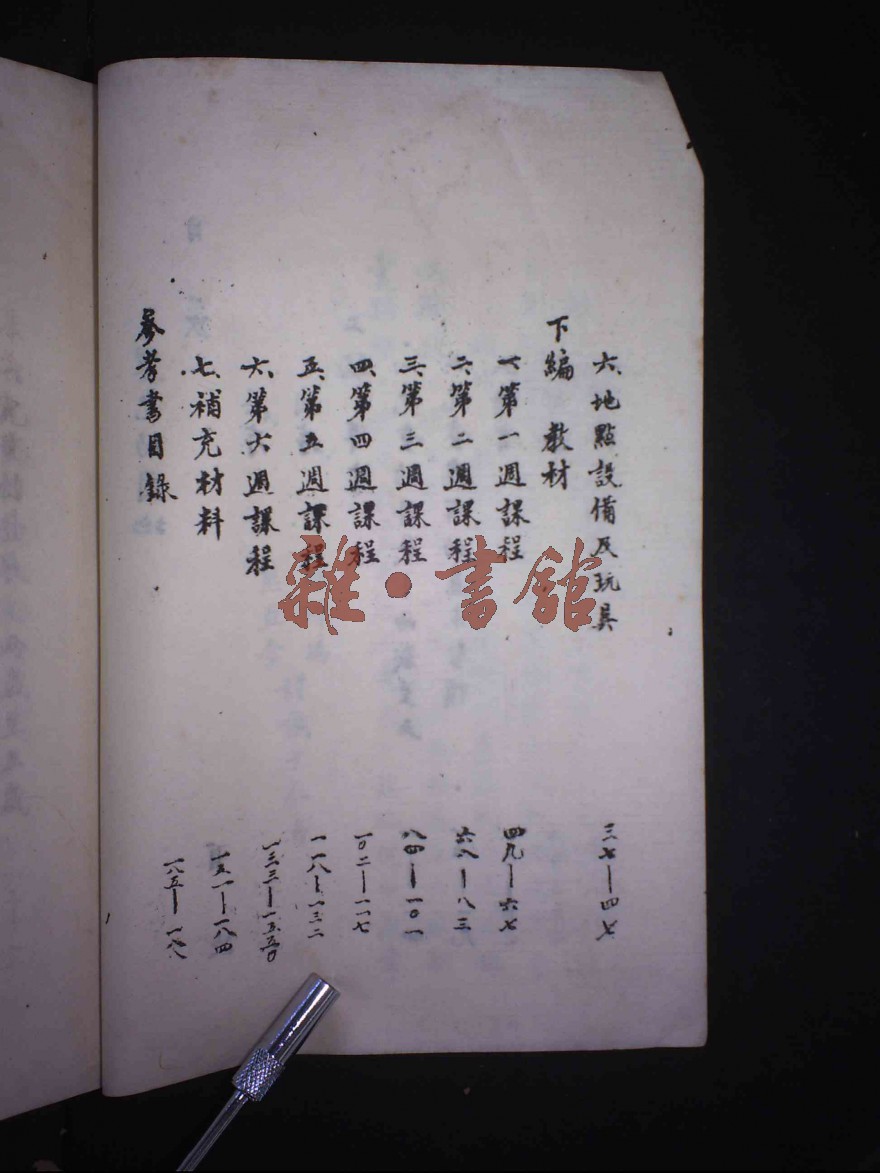 六、地點設備及玩具 三七—四七
下編 教材
一、第一週課程 四九—六七
二、第二週課程 六八—八三
三、第三週課程 八四—一〇一
四、第四週課程 一〇二—一一七
五、第五週課程 一一八—一三二
六、第六週課程
七、補充材料 一五一—一八四
參考書目錄
雜·書館